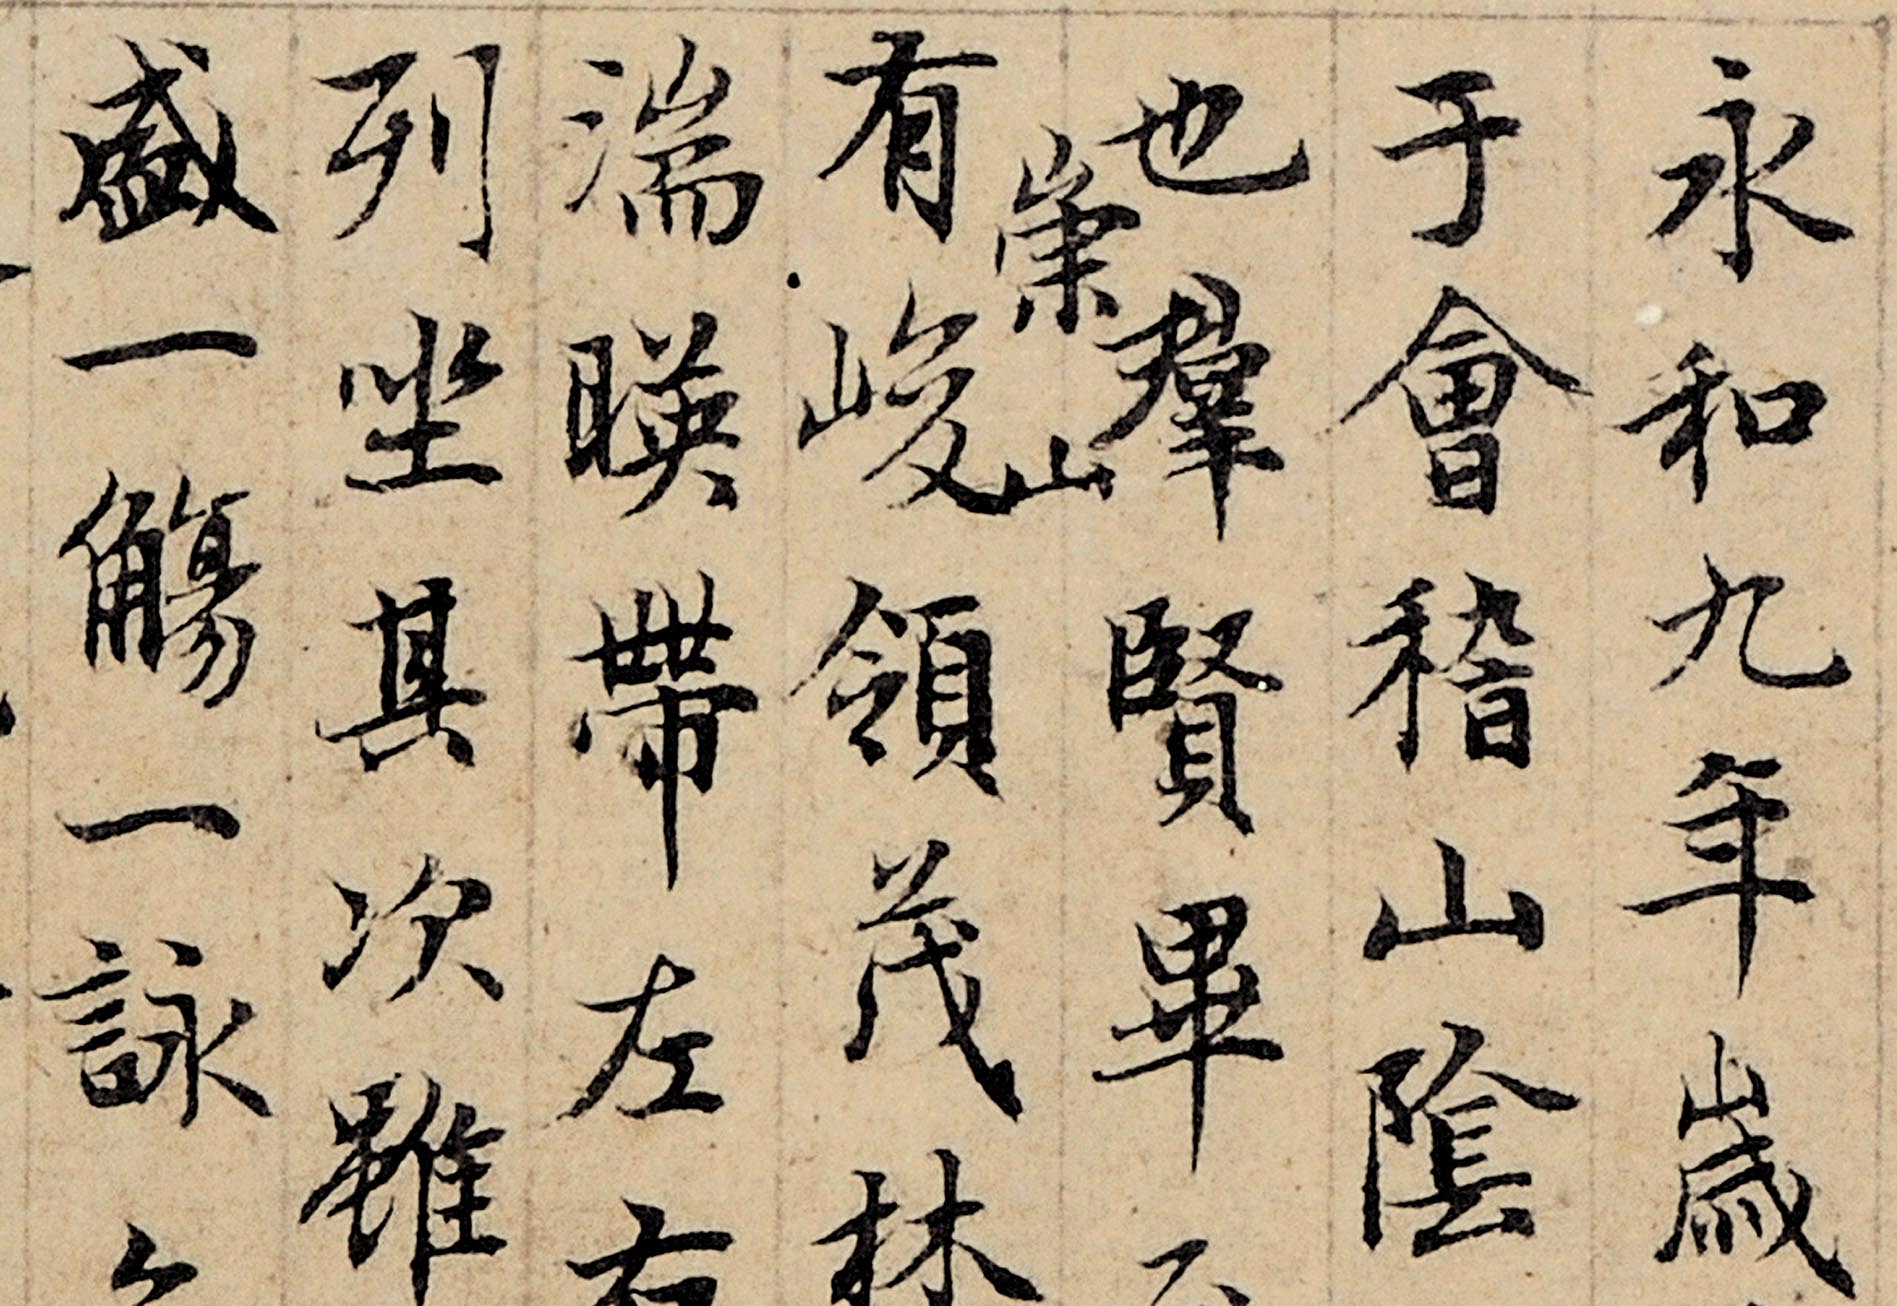 永和九年歲
于會稽山陰
也羣賢畢
崇山
有峻領茂林
湍暎帶左右
列坐其次雖
盛一觴一詠